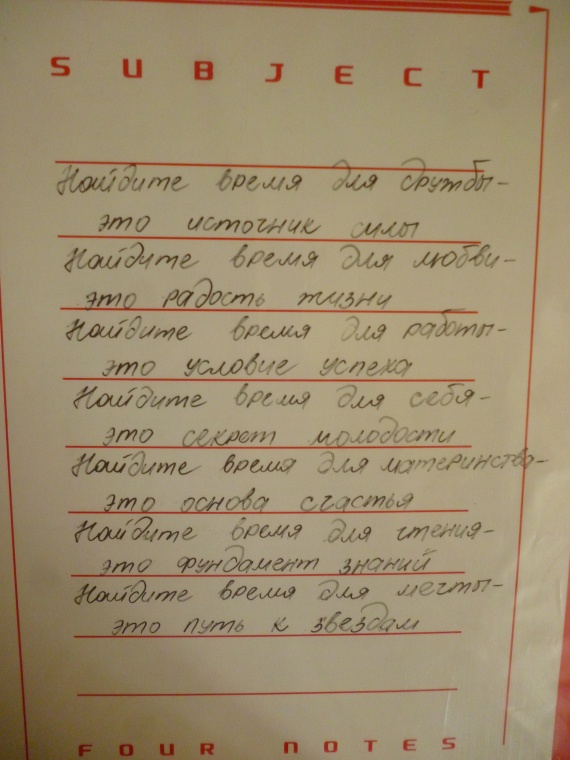 SUBJECT
Найдите время для дружбы-
это источник силы
Найдите время для любви-
это радость жизни
Найдите время для работы-
это условие успеха
Найдите время для себя-
это секрет молодости
Найдите время для материнства-
это основа счастья
Найдите время для чтения-
это фундамент знаний
Найдите время для мечты-
это путь к звездам
FOUR NOTES